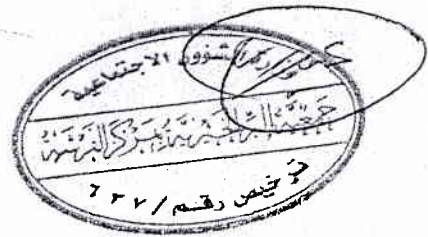 وزارة الشؤون الاجتماعية
جمعية البر الخيرية بمركز البرشنه
ترخيص رقم / ٦٢٧